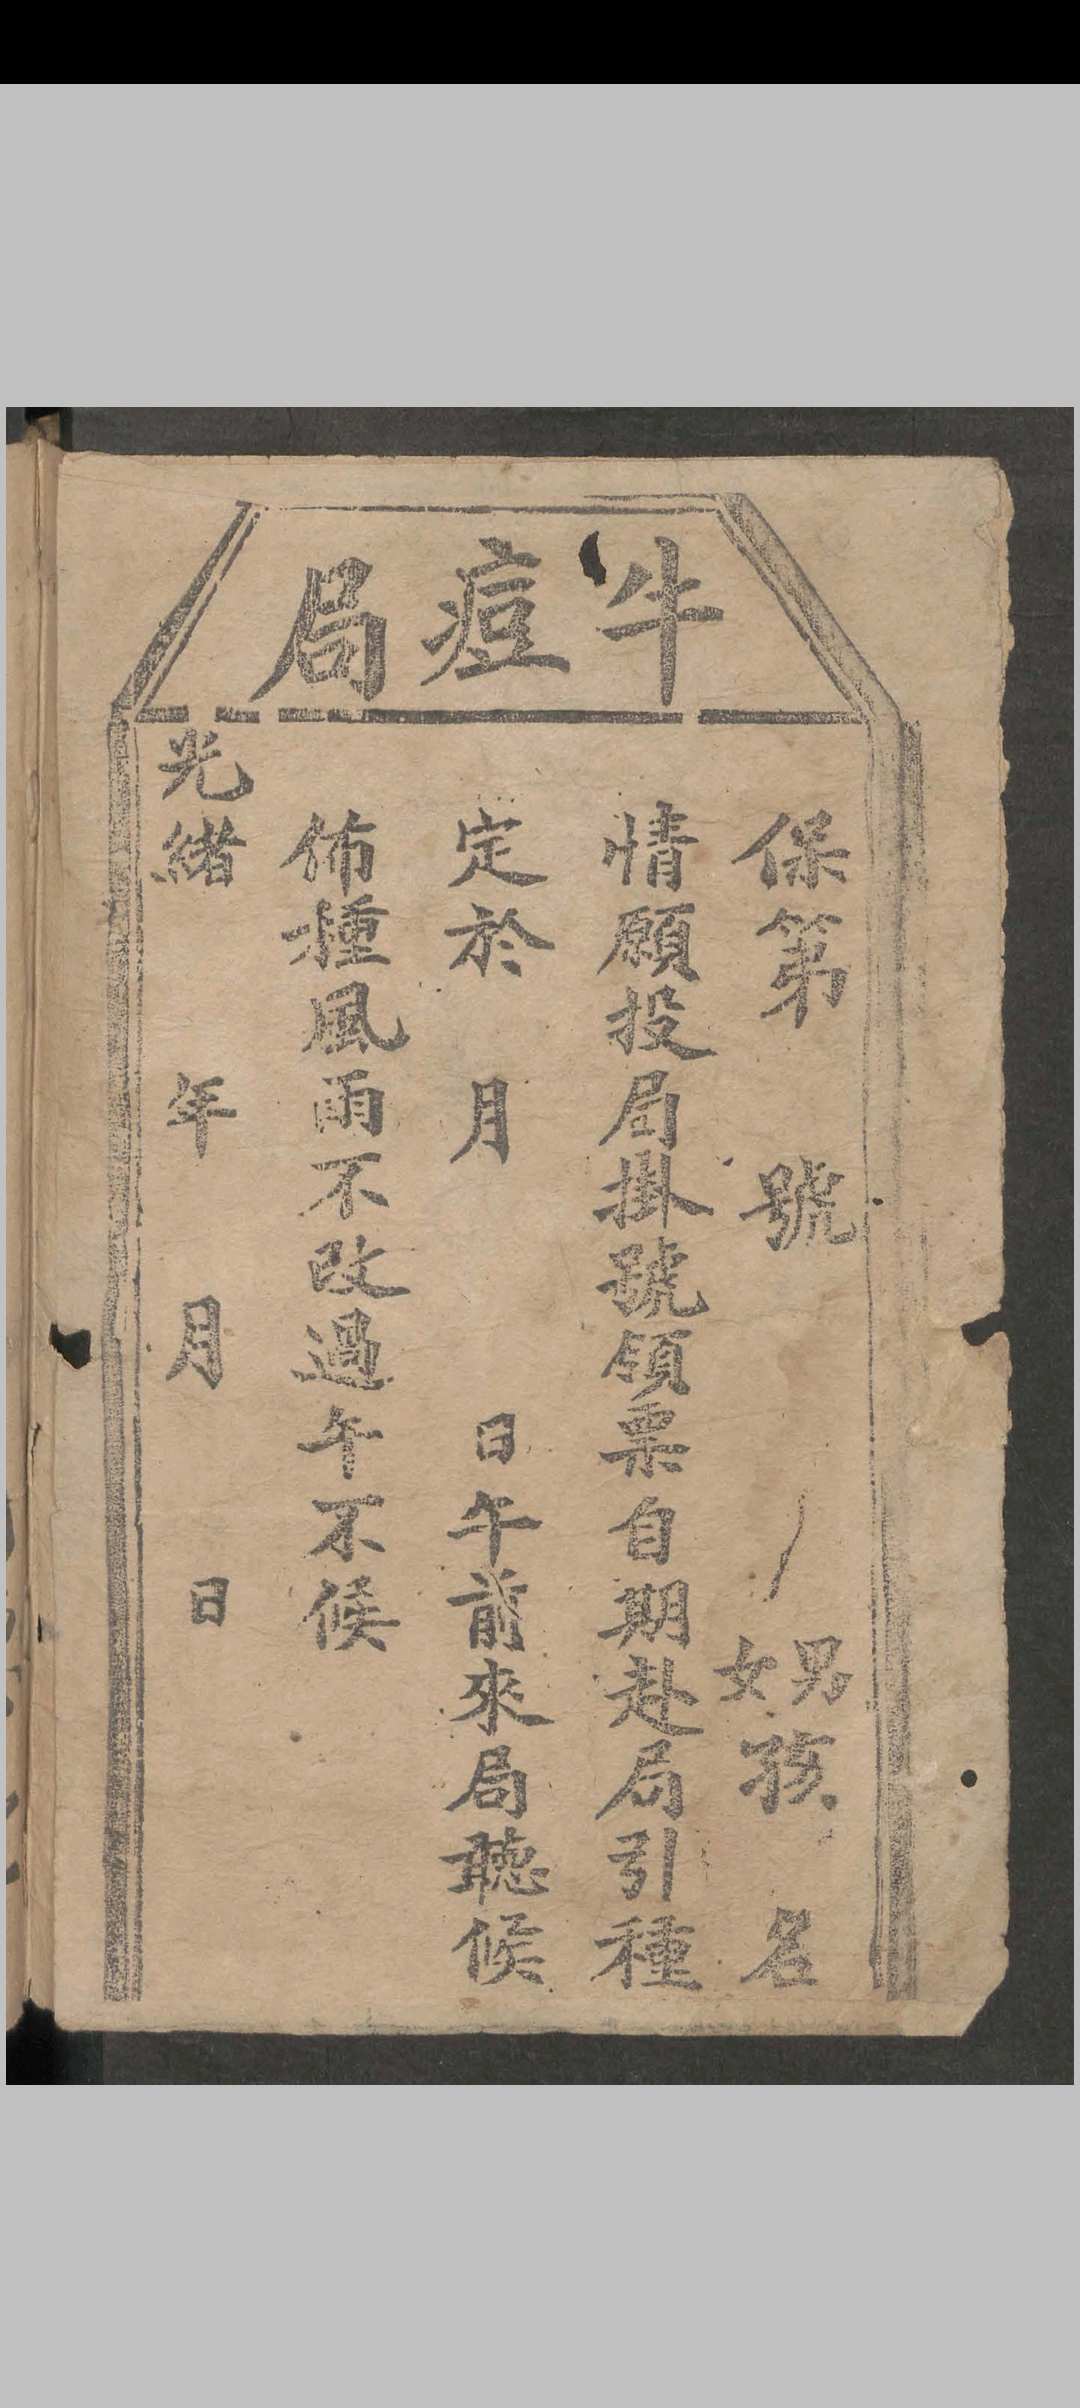 牛痘局
保第　號　男女孩　名
情願投局掛號領票自期赴局引種
定於　月　日午前來局聽候
佈種風雨不改過午不候
光緒　年　月　日